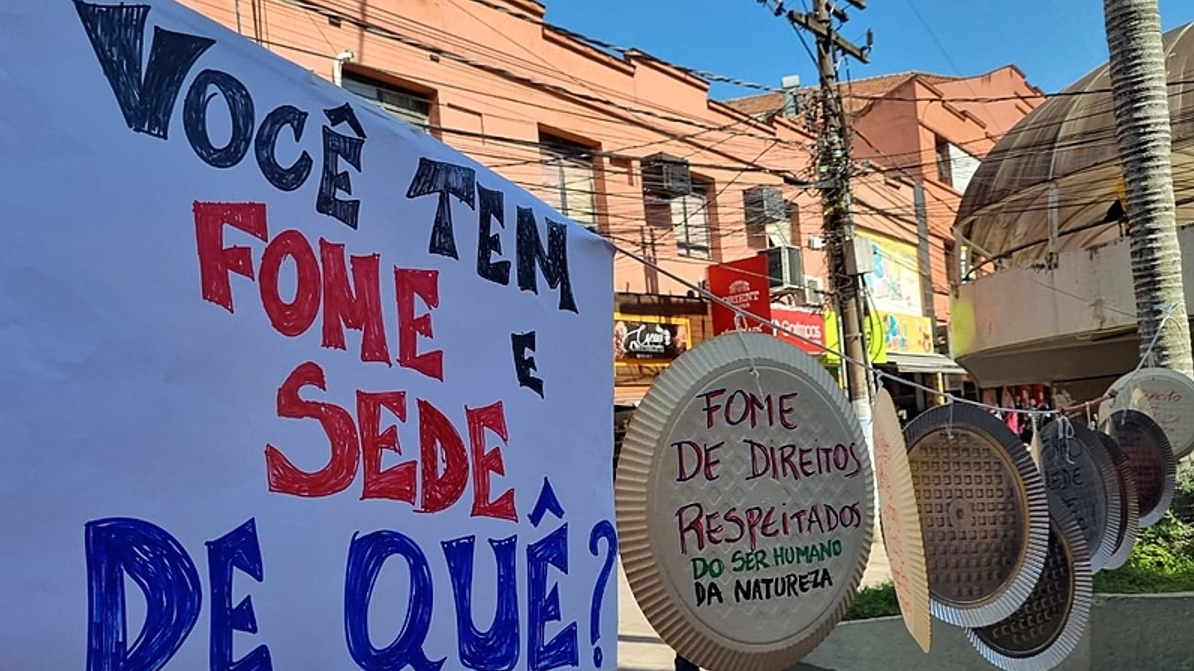 VOCÊ TEM
FOME E
SEDE
DE QUÊ?
FOME
DE DIREITOS
RESPEITADOS
DO SER HUMANO
DA NATUREZA
ORIENT
SEDE